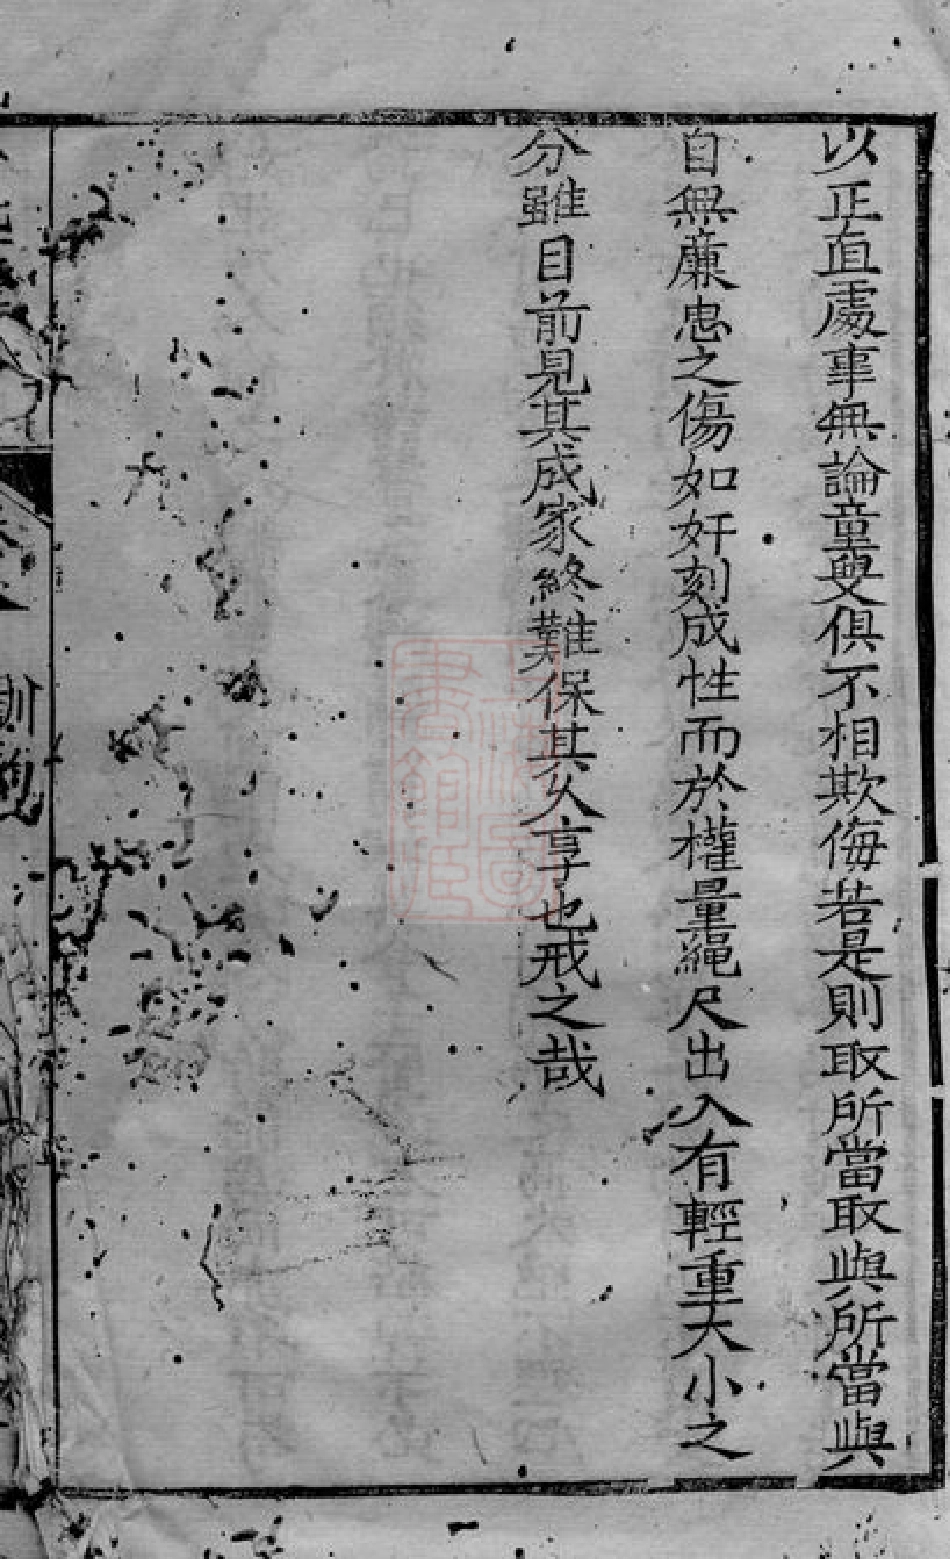 以正直處事無論童叟俱不相欺侮若是則取所當取與所當與
自無廉患之傷如奸刻成性而於權量繩尺出入有輕重大小之
分雖目前見其成家終難保其久享也戒之哉